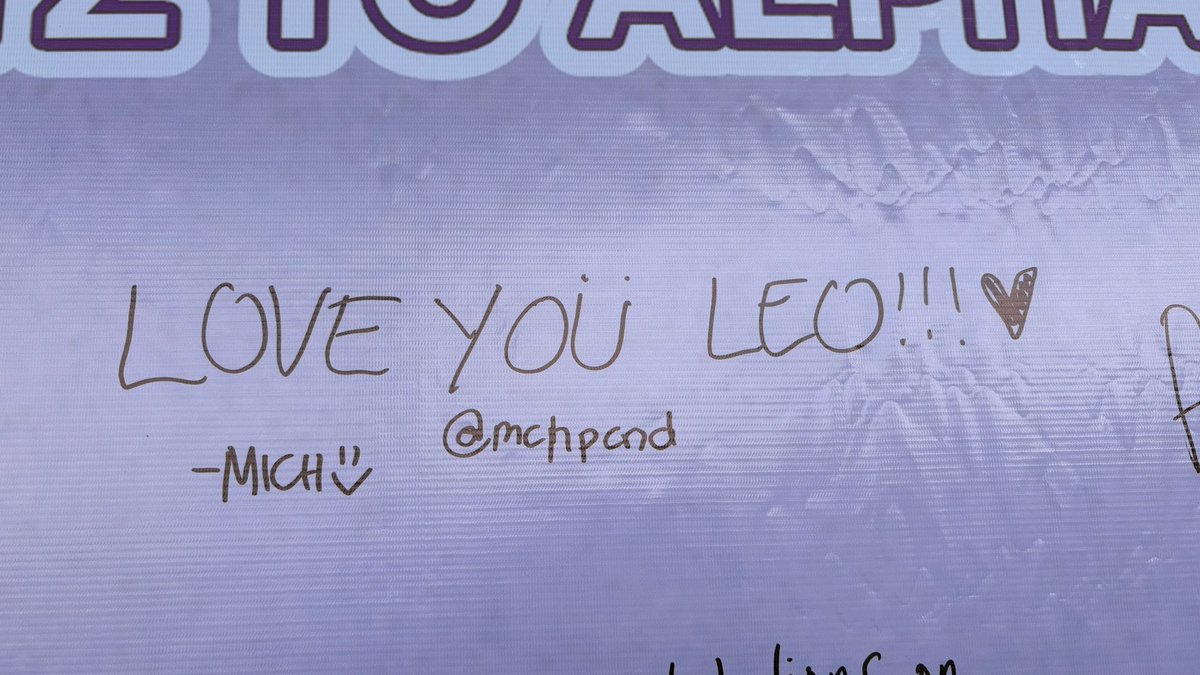 TO ALPHA
LOVE YOÜ LEO!!! ♥
@mchpcnd
-MICH
on